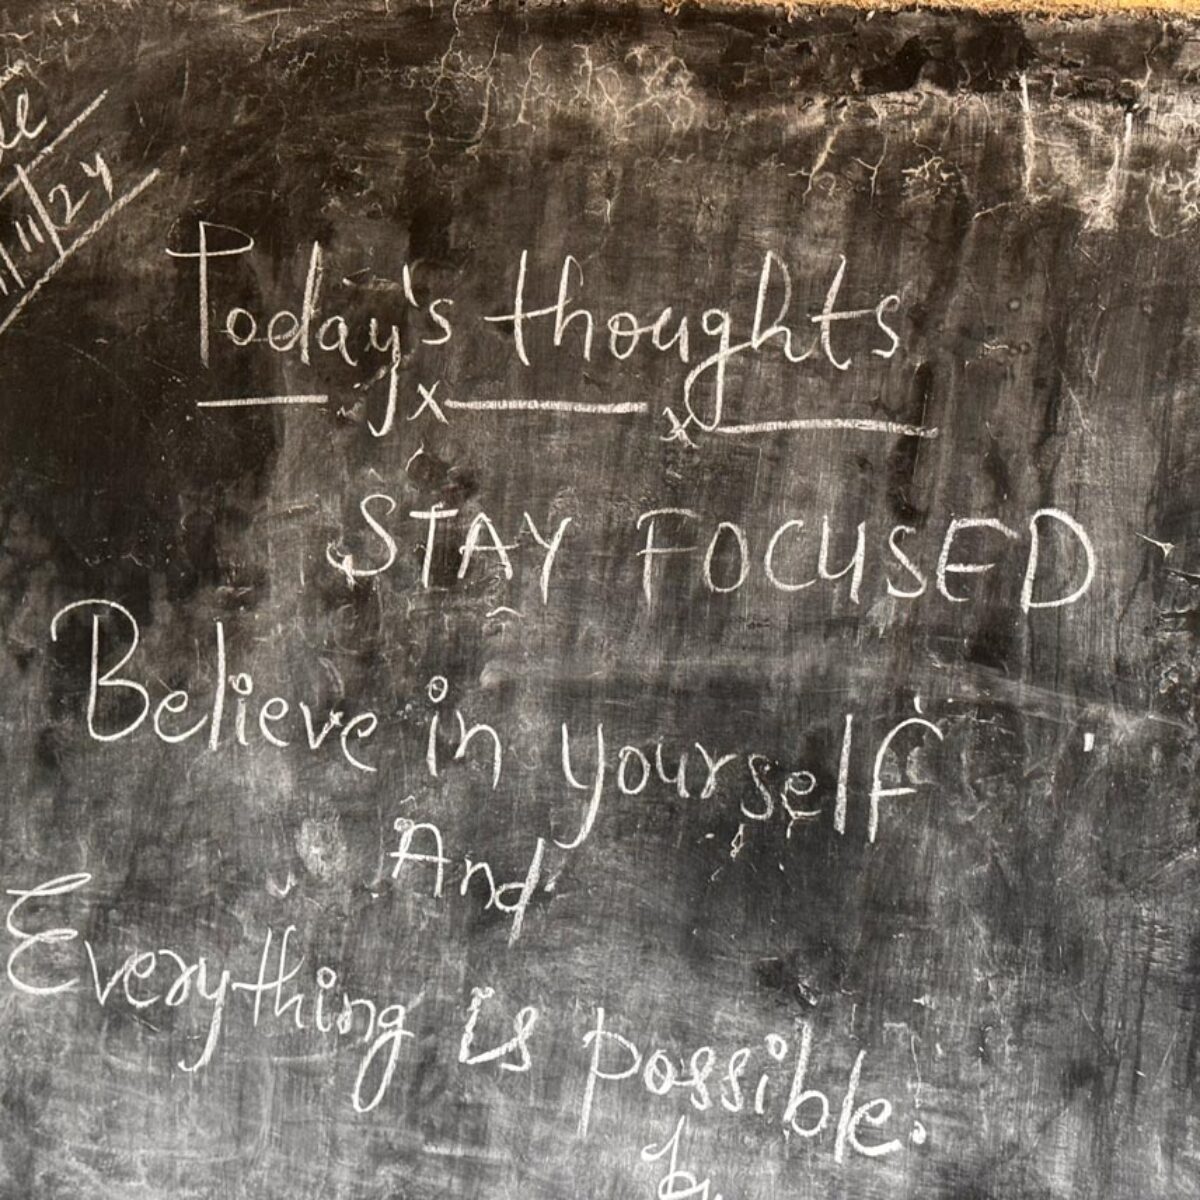 11/24
Today's thoughts
x x
STAY FOCUSED
Believe in yourself
And
Everything is possible.